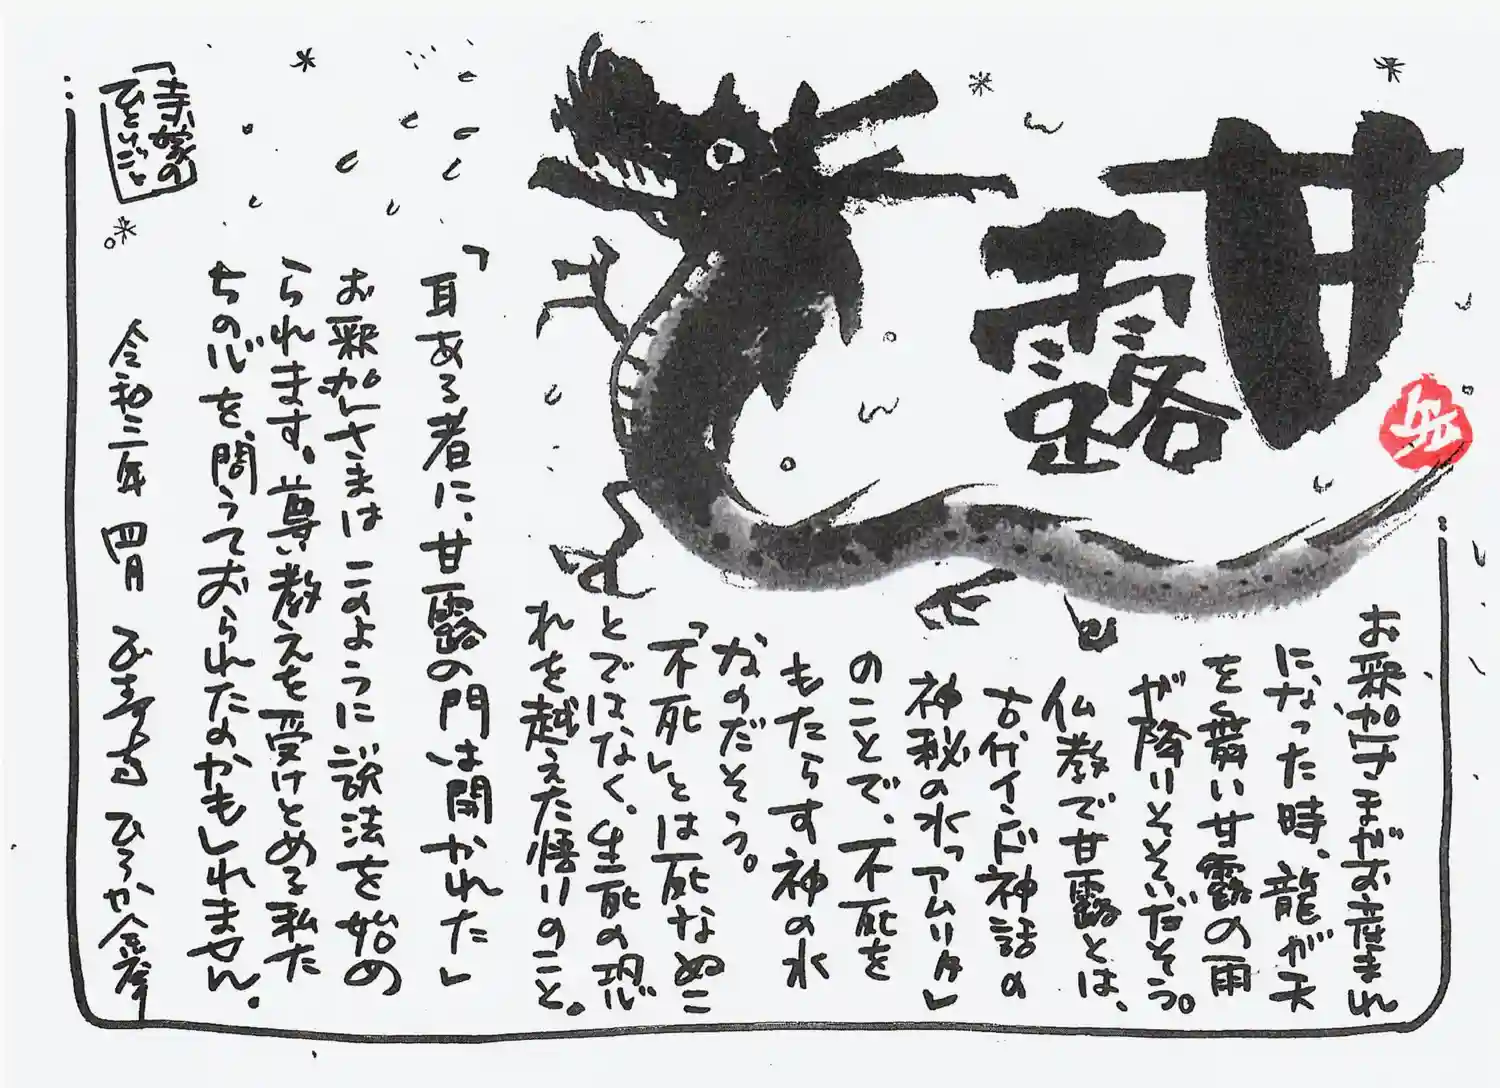 甘露
お釈迦さまがお産まれ
になった時、龍が天
を舞い甘露の雨
が降りそそいだそう。
仏教で甘露とは、
古代インド神話の
神秘の水「アムリタ」
のことで、不死を
もたらす神の水
なのだそう。
「不死」とは死なぬこ
とではなく、生死の恐
れを越えた悟りのこと。
「耳ある者に、甘露の門は開かれた」
お釈迦さまはこのように説法を始め
られます。尊い教えを受けとめる私た
ちの心を、問うておられたのかもしれません。
令和三年 四月 ひろか合掌
「寺嫁の
ひとりごと」